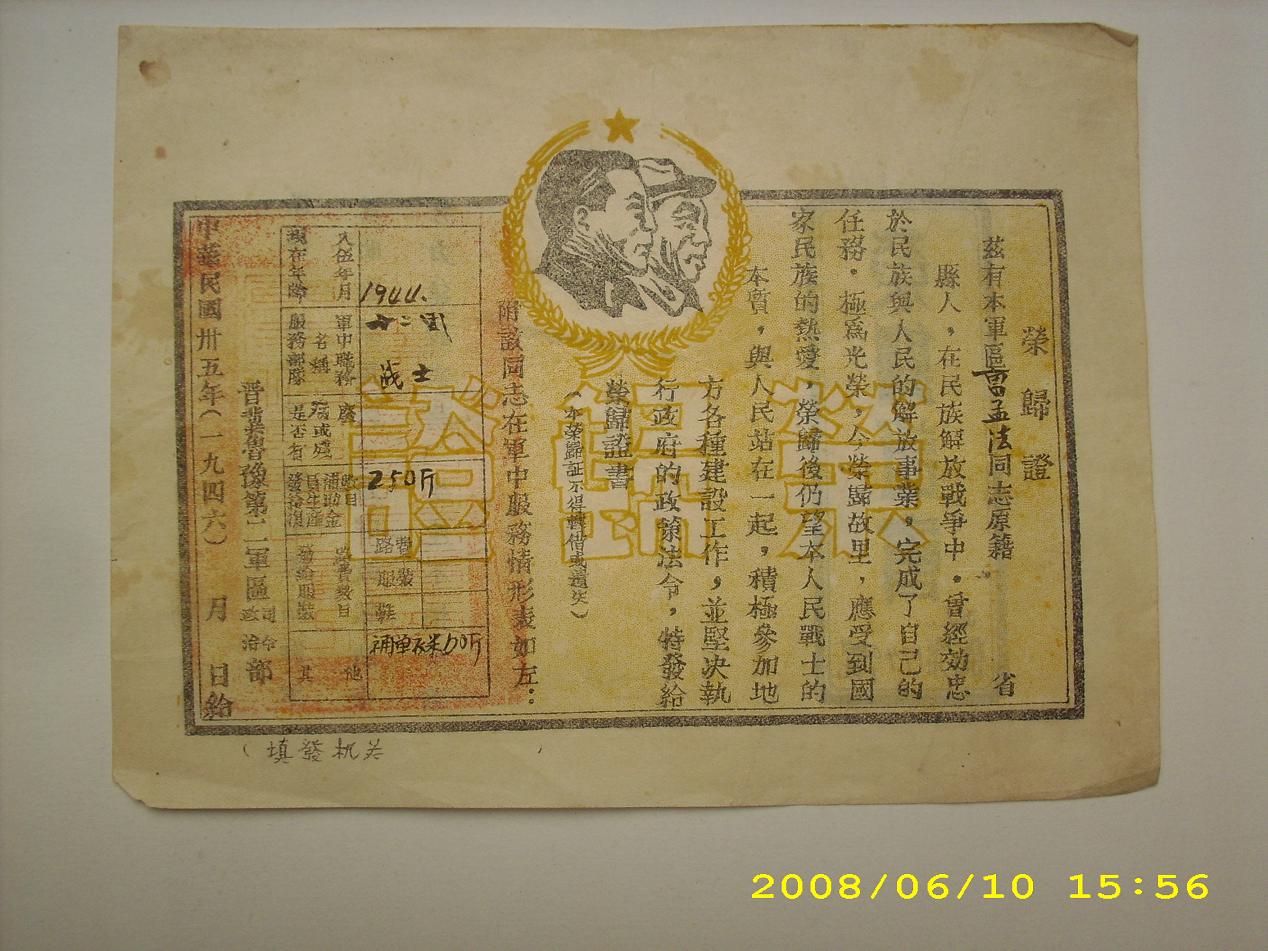 榮歸證
茲有本軍區曹孟法同志原籍 省
縣人，在民族解放戰爭中，曾經効忠
於民族與人民的解放事業，完成了自己的
任務，極為光榮，今榮歸故里，應受到國
家民族的熱愛，榮歸後仍望本人民戰士的
本質，與人民站在一起，積極參加地
方各種建設工作，並堅决執
行政府的政策法令，特發給
榮歸證書
（本榮歸証不得轉借或遺失）
附該同志在軍中服務情形表如左：
入伍年月
現在年齡
1944.
軍中職務
名稱
服務部隊
十二团
战士
是否有
殘或殘
廢
發給復
員生產
補助金
數目
250斤
路費
服裝
鞋
其他
補单衣米60斤
晋冀魯豫第二軍區司令部
政治
中華民國卅五年（一九四六） 月 日給
（填發机关 ）
榮歸證
2008/06/10 15:56